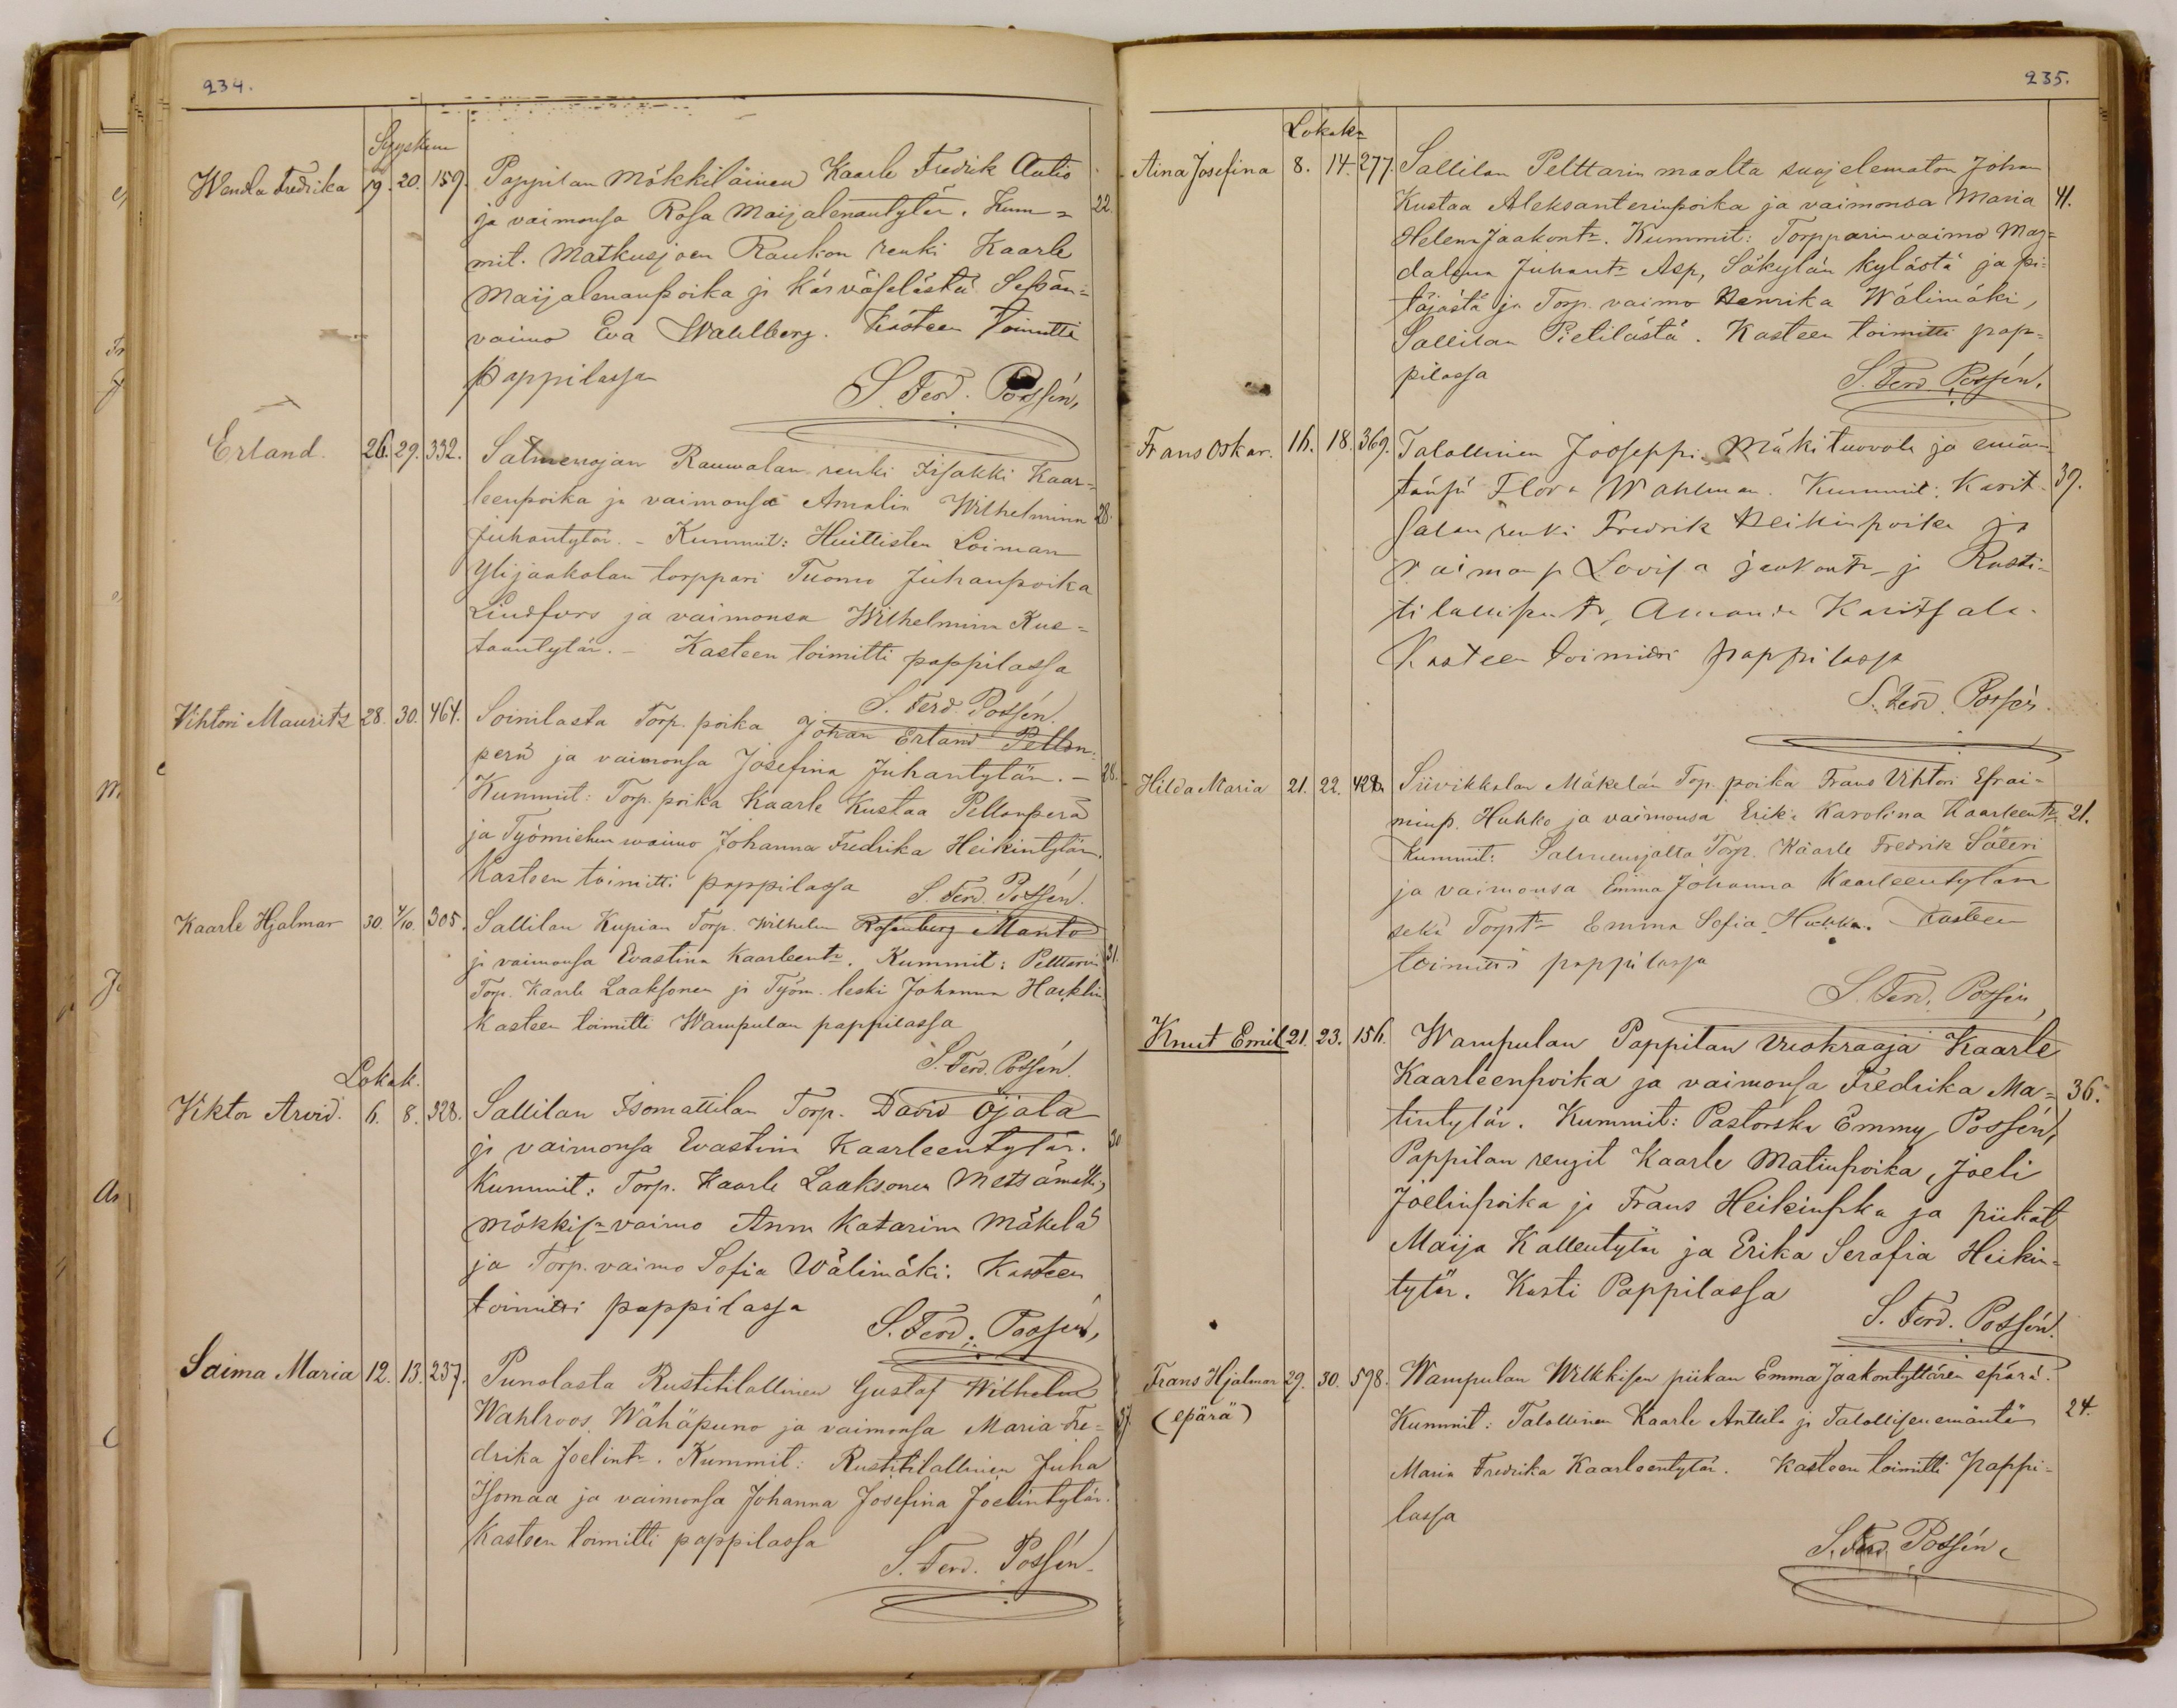 234.
Syyskuu
Wendla Fredrika 19. 20. 159. Pappilan Mökkiläinen Kaarle Fredrik Autio
ja vaimonsa Rosa Maijalenantytär. Kum= 22.
mit. Matkusjoen Raukon renki Kaarle
Maijalenanpoika ja
vaimo Eva Wahlberg. Kasteen toimitti
pappilassa
S. Ferd. Possén.
Erland. 26. 29. 332. Salmenojan Rauwolan renki Iisakki Kaar=
leenpoika ja vaimonsa Amalia Wilhelmina 28.
Juhantytär. - Kummit: Huittisten Loiman
Ylijaakolan torppari Tuomo Juhanpoika
Lindfors ja vaimonsa Wilhelmina Kus=
taantytär. - Kasteen toimitti pappilassa
S. Ferd. Possén.
Vihtori Mauritz 28. 30. 464. Soinilasta Torp. poika Johan Erland Pellon=
perä ja vaimonsa Josefina Juhantytär. - 28.
Kummit: Torp. poika Kaarle Kustaa Pellonperä
ja Työmiehen waimo Johanna Fredrika Heikintytär.
Kasteen toimitti pappilassa S. Ferd. Possén.
Kaarle Hjalmar 30. 4/10. 305. Sallilan Kupian Torp. Wilhelm Rosenberg Manto
ja vaimonsa Evastina Kaarleentr. Kummit: Pelttarin 31.
Torp. Kaarle Laaksonen ja Työm. leski Johanna Hacklin.
Kasteen toimitti Wampulan pappilassa
S. Ferd. Possén.
Lokak.
Viktor Arvid. 6. 8. 328. Sallilan Isomattilan Torp. David Ojala
ja vaimonsa Evastina Kaarleentytär. 30
Kummit: Torp. Kaarle Laaksonen Metsämatti,
mökkis= vaimo Anna Katarina Mäkelä
ja Torp. vaimo Sofia Wälimäki. Kasteen
toimitti pappilassa
S. Ferd. Possén.
Saima Maria 12. 13. 237. Punolasta Rustitilallinen Gustaf Wilhelm
Wahlroos Wähäpuno ja vaimonsa Maria Fre= 37
drika Joelintr. Kummit: Rustitilallinen Juha
Isomaa ja vaimonsa Johanna Josefina Joelintytär.
Kasteen toimitti pappilassa
S. Ferd. Possén.
235.
Lokak.
Aina Josefina 8. 14. 277. Sallilan Pelttarin maalta suojelematon Johan
Kustaa Aleksanterinpoika ja vaimonsa Maria 41.
Helena Jaakontr. Kummit: Torpparin vaimo Mag=
dalena Juhantr Asp, Säkylän kylästä ja pi=
täjästä ja Torp. vaimo Henrika Wälimäki,
Sallilan Pietilästä. Kasteen toimitti pap=
pilassa
S. Ferd. Possén.
Frans Oskar. 16. 18. 369. Talollinen Jooseppi Mäkituovola ja emän=
tänsä Flora Wahlman. Kummit: Karit= 39.
salan renki Fredrik Heikinpoika ja
vaimonsa Lovisa Jaakontr ja Rusti=
tilallisen tr, Amanda Karitsala.
Kasteen toimitti pappilassa
S. Ferd. Possén.
Hilda Maria 21. 22. 428. Siivikkalan Mäkelän Torp. poika Frans Vihtori Efrai=
minp. Huhko ja vaimonsa Erika Karolina Kaarleentr 21.
Kummit: Salmenojalta Torp. Kaarle Fredrik Säteri
ja vaimonsa Emma Johanna Kaarleentytär
sekä Torptr Emma Sofia Huhko. Kasteen
toimitti pappilassa
S. Ferd. Possén
Knut Emil 21. 23. 156. Wampulan Pappilan Vuokraaja Kaarle
Kaarleenpoika ja vaimonsa Fredrika Ma= 36.
tintytär. Kummit: Pastorska Emmy Possén,
Pappilan rengit Kaarle Matinpoika, Joeli
Joelinpoika ja Frans Heikinpka ja piikat
Maija Kallentytär ja Erika Serafia Heikin=
tytär. Kasti Pappilassa
S. Ferd. Possén.
Frans Hjalmar 29. 30. 598. Wampulan Wilkkisen piikan Emma Jaakontyttären epärä.
(epärä) Kummit: Talollinen Kaarle Anttila ja Talollisen emäntä 24.
Maria Fredrika Kaarleentytär. Kasteen toimitti Pappi=
lassa
S. Ferd. Possén.